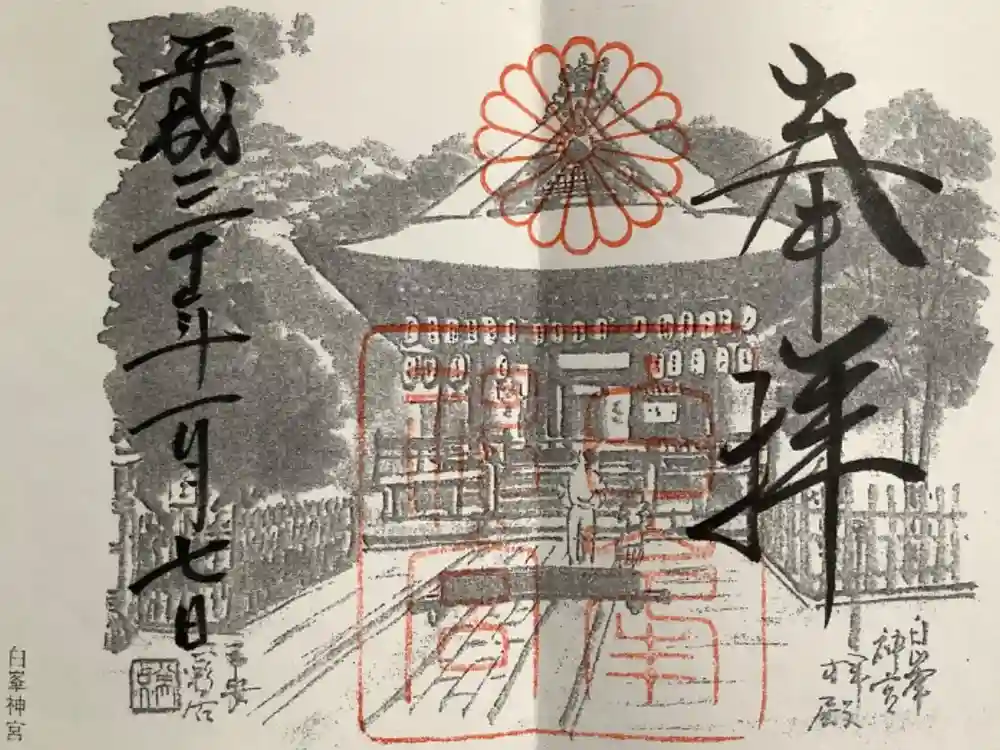 奉拝
白峯
神宮
平成三十年一月七日
白峯
神宮
拝殿
白峯神宮